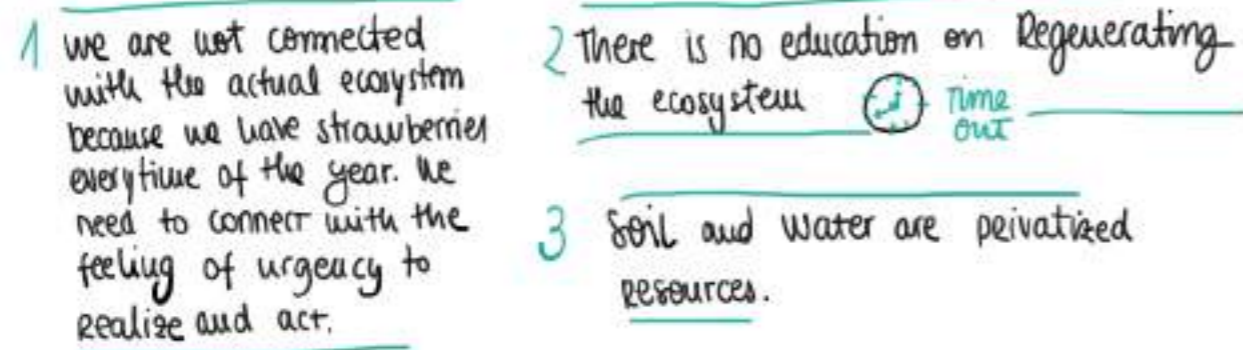 1 we are not connected
with the actual ecosystem
because we have strawberries
everytime of the year. We
need to connect with the
feeling of urgency to
Realize and act.
2 There is no education on Regenerating
the ecosystem
Time
out
3 Soil and Water are privatized
Resources.